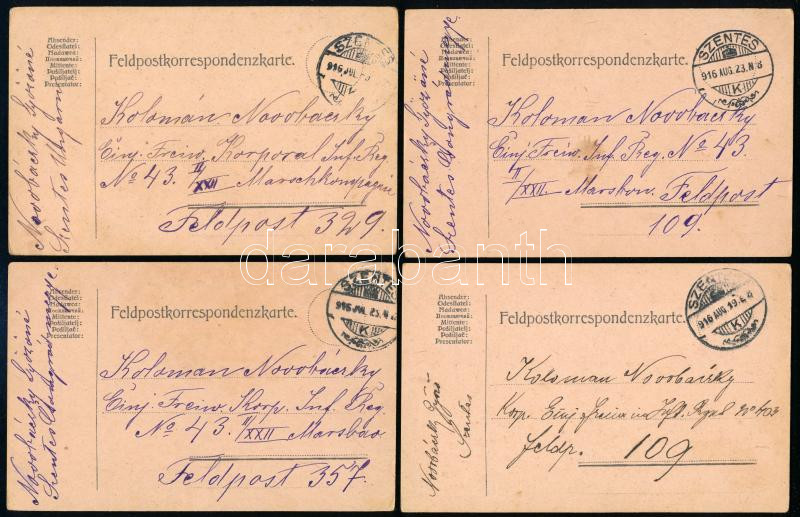 Absender:
Odesílatel:
Nadawca:
Mittente:
Pošiljatelj:
Pošiljač:
Presentator:
Feldpostkorrespondenzkarte.
SZENTES
Koloman Novobáczky
Einj. Freiw. Korporal Inf. Reg.
No 43. II/XXII Marschkompagnie
Feldpost 329.
Novobáczky Győzőné
Szentes Ungarn
Absender:
Odesílatel:
Nadawca:
Mittente:
Pošiljatelj:
Pošiljač:
Presentator:
Feldpostkorrespondenzkarte.
SZENTES
916 AUG. 23. N 8
K
Koloman Novobáczky
Einj. Freiw. Inf. Reg. No 43
I/XXII. Marskom. Feldpost
109.
Novobáczky Győzőné
Szentes
Absender:
Odesílatel:
Nadawca:
Mittente:
Pošiljatelj:
Pošiljač:
Presentator:
Feldpostkorrespondenzkarte.
SZENTES
K
Koloman Novobáczky
Einj. Freiw. Korp. Inf. Reg.
No 43 II/XXII
Feldpost 357.
Novobáczky Győzőné
Szentes
Absender:
Odesílatel:
Nadawca:
Mittente:
Pošiljatelj:
Pošiljač:
Presentator:
Feldpostkorrespondenzkarte.
SZENTES
916 AUG. 19.
K
Koloman Novobáczky
Korp.
feldp. 109
Szentes
darabanth